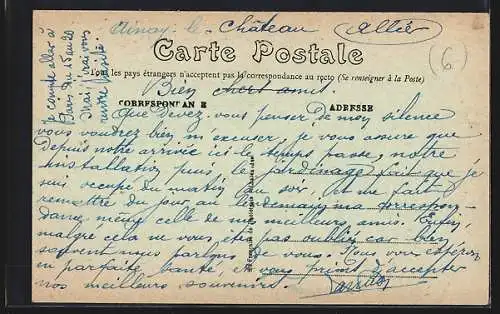 Ainay le Château (Allier)
Carte Postale
Tous les pays étrangers n'acceptent pas la correspondance au recto (Se renseigner à la Poste)
Bien chers amis.
CORRESPONDANCE
ADRESSE
Que devez-vous penser de moy silence
vous voudrez bien m'excuser, je vous assure que
depuis notre arrivée ici le temps passe, notre
installation puis le jardinage fait que je
suis occupé du matin au soir, et me fait
remettre du jour au lendemain ma correspon-
dance, même celle de mes meilleurs amis. Enfin,
malgré cela ne vous ai pas oubliés car bien
souvent nous parlons de vous. Nous vous espérons
en parfaite santé, et vous prions d'accepter
nos meilleurs souvenirs.
Je compte aller à
Paris du 15 au 20
Mai, j'irai vous
rendre visite.
6